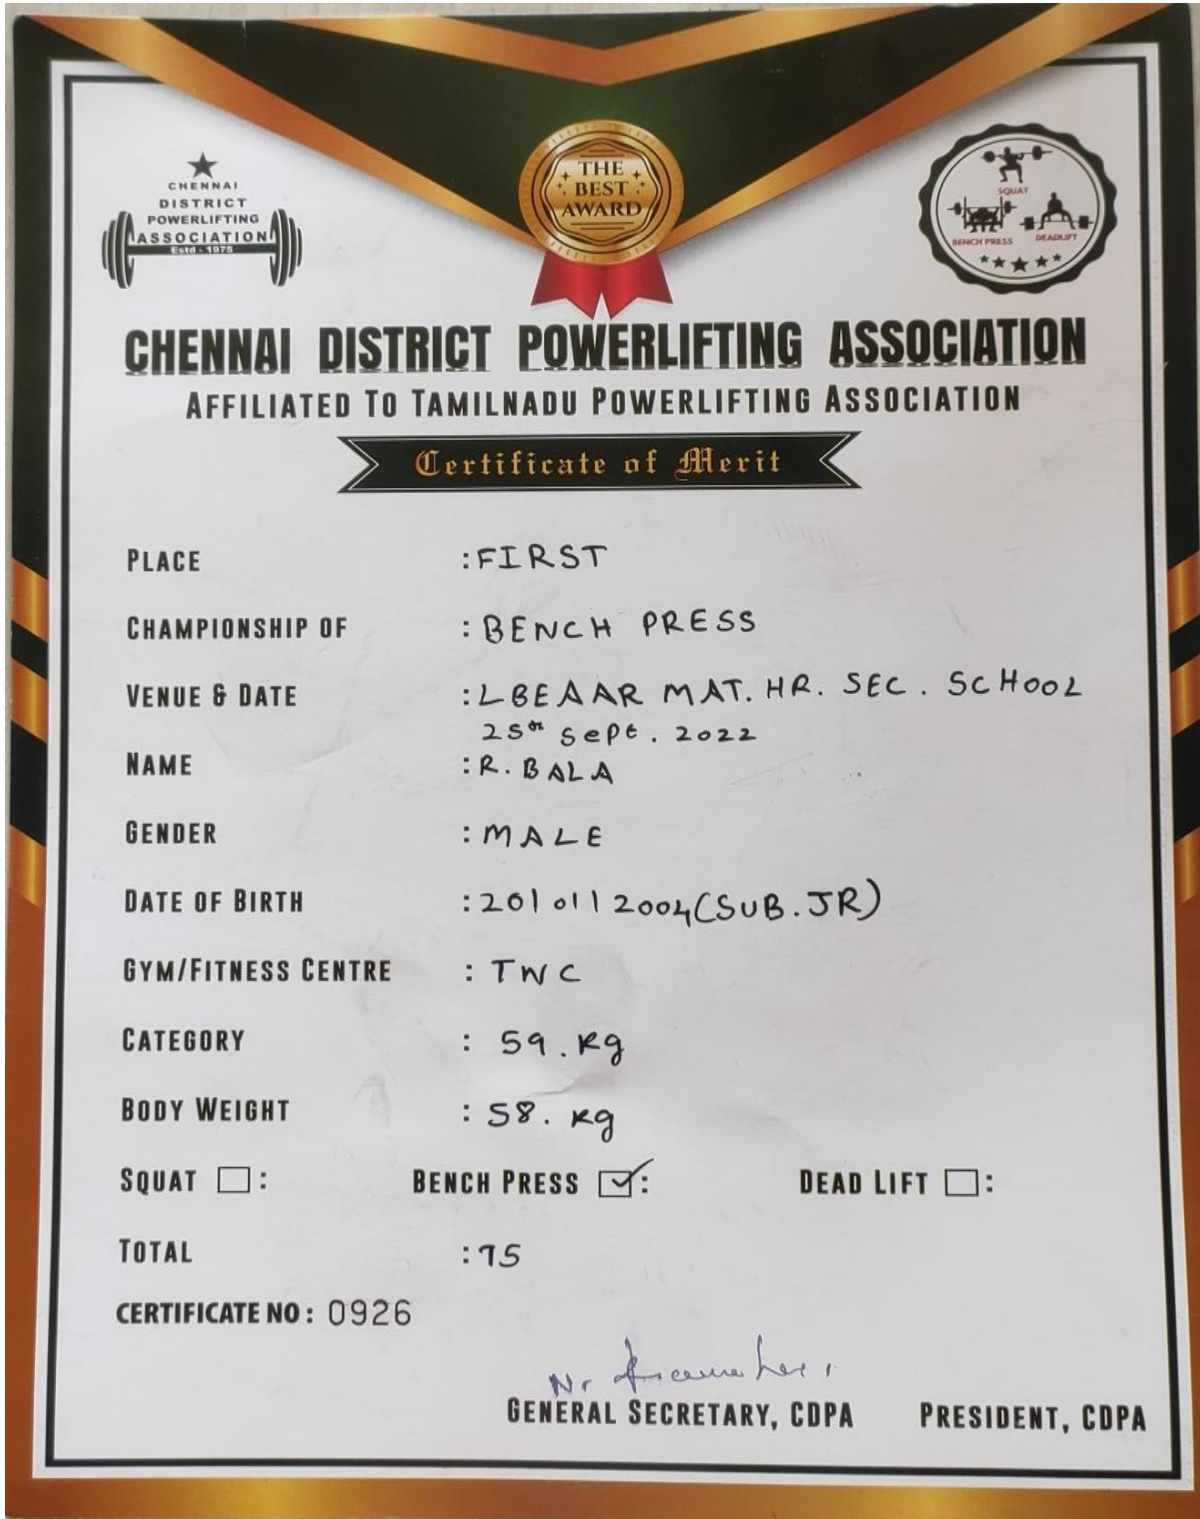 THE
BEST
AWARD
CHENNAI
DISTRICT
POWERLIFTING
ASSOCIATION
Estd - 1975
SQUAT
BENCH PRESS DEADLIFT
CHENNAI DISTRICT POWERLIFTING ASSOCIATION
AFFILIATED TO TAMILNADU POWERLIFTING ASSOCIATION
Certificate of Merit
PLACE : FIRST
CHAMPIONSHIP OF : BENCH PRESS
VENUE & DATE : LBEAAR MAT. HR. SEC. SCHOOL
25th Sept. 2022
NAME : R. BALA
GENDER : MALE
DATE OF BIRTH : 20/01/2004 (SUB. JR)
GYM/FITNESS CENTRE : TWC
CATEGORY : 59. Kg
BODY WEIGHT : 58. Kg
SQUAT : BENCH PRESS : DEAD LIFT :
TOTAL : 75
CERTIFICATE NO : 0926
GENERAL SECRETARY, CDPA PRESIDENT, CDPA